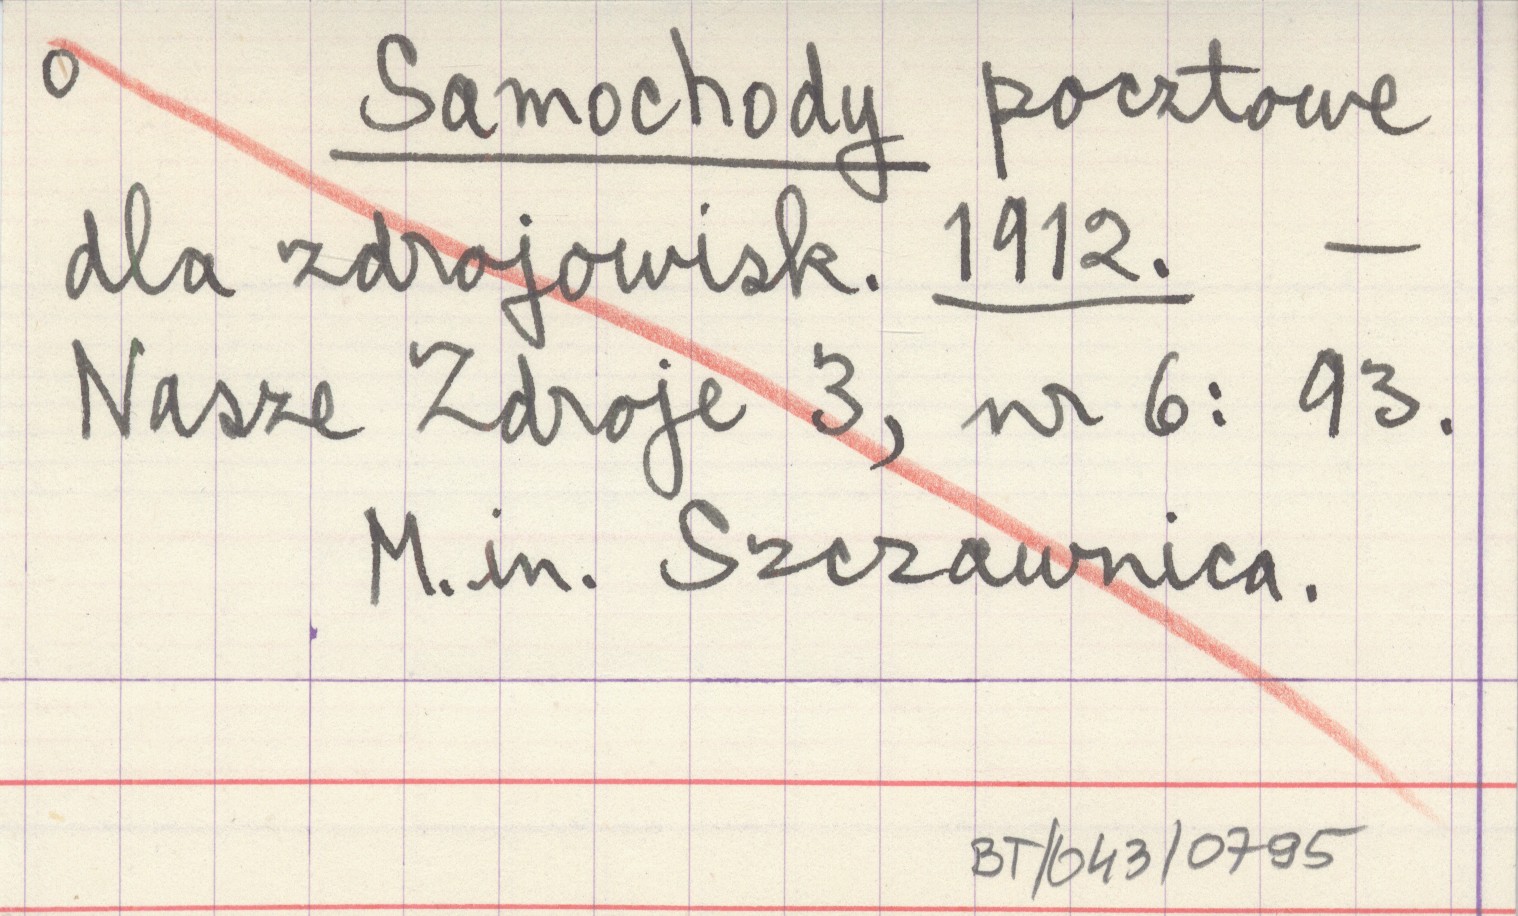 o Samochody pocztowe
dla zdrojowisk. 1912. —
Nasze Zdroje 3, nr 6: 93.
M.in. Szczawnica.
BT/043/0795